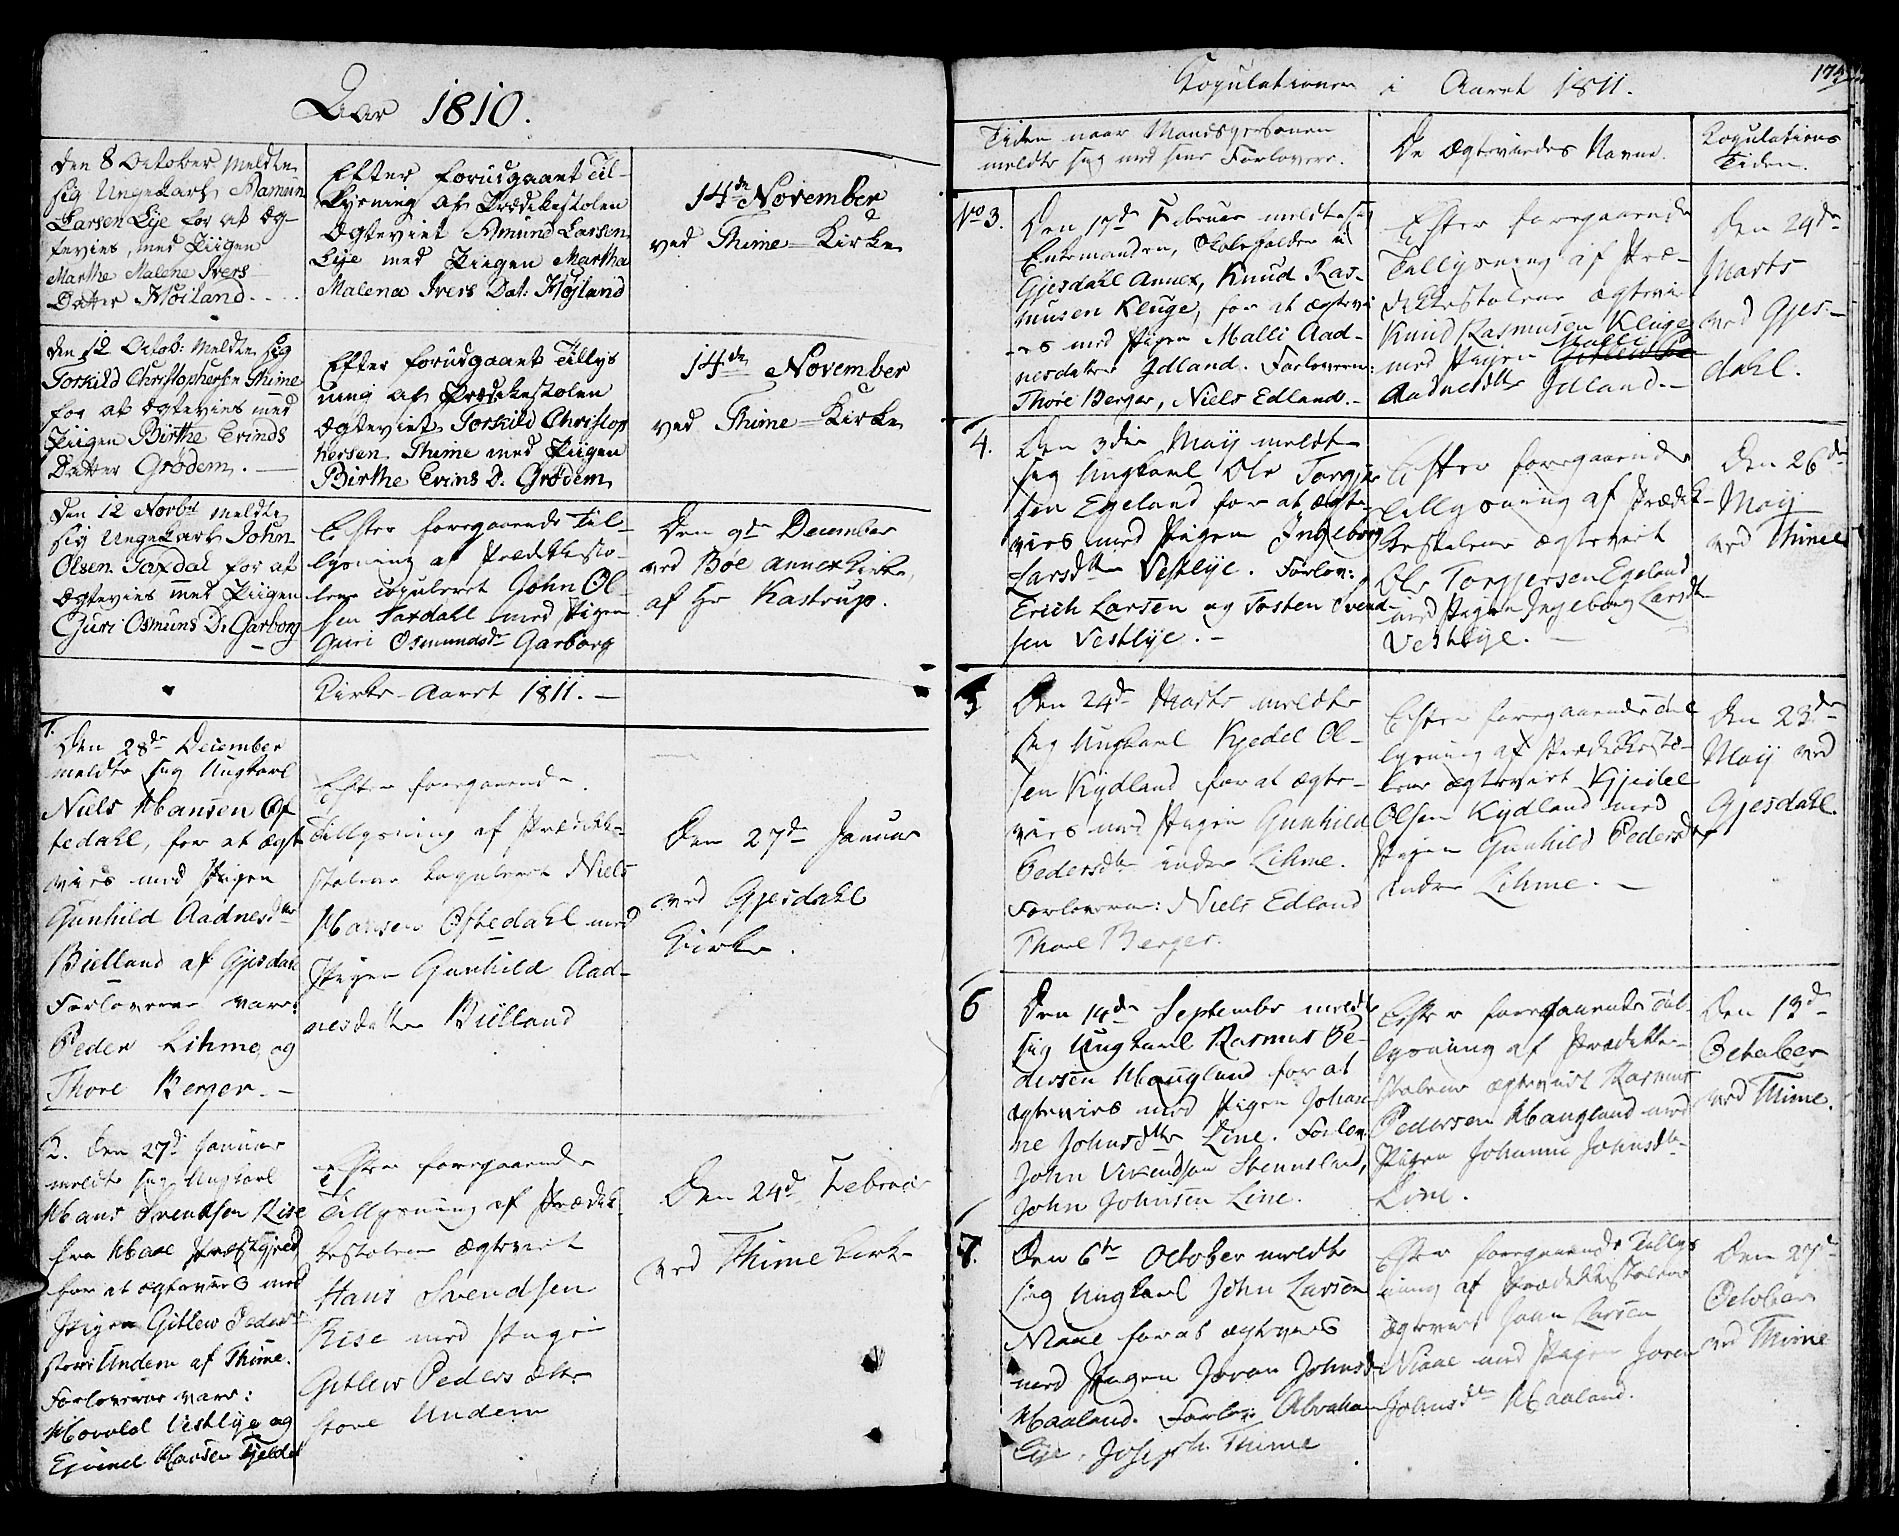 Aar 1810.
Den 8 October Meldte
sig Ungekarl Aamun
Larsen Lye for at Æg-
tevies, med Piigen
Marthe Malene Ivers
Datter Høiland.
Efter forudgaaet Til-
lysning af Prædikestolen
Ægteviet Amund Larsen
Lije med Piigen Martha
Malena Ivers Dat: Højland
14de November
ved Thime-Kirke
Den 12 Octob: Meldte sig
Torkild Christophersen Thime
for at Ægtevies med
Piigen Birthe Evinds
Datter Grødem.
Efter forudgaaet Tillys
ning af Prædikestolen
Ægteviet Torkild Christop
hersen Thime med Piigen
Birthe Evins D. Grødem
14de November
ved Thime-Kirke
Den 12 Novbr Meldte
sig Ungekarl John
Olsen Taxdal for at
Ægtevies med Piigen
Guri Osmuns D. Garborg
Efter foregaaende Til-
lysning af Prædikesto-
len copuleret John Ol-
sen Taxdahl med Pigen
Guri Osmundsdr Garborg
Den 9de December
ved Bøe Annex Kirke
af Hr Kastrup.
Kirke-Aaret 1811.
1.
Den 28de December
meldte sig Ungkarl
Niels Hansen Of
tedahl, for at ægt
vies med Pigen
Gunhild Aadnesdtr
Bülland af Gjesdahl
Forloverne vare:
Peder Lihme og
Thore Berger.
Efter foregaaende
Tillysning af Prædike-
stolen kopuleret Niels
Hansen Oftedahl med
Pigen Gunhild Aad-
nesdatter Bülland
Den 27de Januar
ved Gjesdahl
Kirke.
2. Den 27de Januar
meldte sig Ungkarl
Hans Svendsen Rise
fra Haae Præstegjeld
for at ægtevies med
Pigen Gitlew Peders
store Undem af Thime.
Forloverne vare:
Hovald Vestlye og
Ejvind Hansen Fjelde
Efter foregaaende
Tillysning af Prædik
kestolen Ægteviet
Hans Svendsen
Rise med Pigen
Gitlew Pedersdtr
store Undem
Den 24de Februar
ved Thime Kirke
Kopulationer i Aaret 1811.
Tiden naar Mandspersonen
meldte sig med sine Forlovere.
De Ægteviedes Navne.
Kopulations
Tiden.
No 3.
Den 17de Februar meldte sig
Enkemanden, Skoleholder i
Gjesdahl Annex, Knud Ras-
musen Kluge, for at ægtevi
es med Pigen Malli Aad-
nesdatter Idland. Forloverne:
Thore Berger, Niels Edland.
Efter foregaaende
Tillysning af Præ-
dikkestolen ægtevi
Knud Rasmusen Kluge
med Pigen Malli
Aadnesdtr Idland.
Den 24de
Marts
ved Gjes-
dahl.
4.
Den 3die Maij meldte
sig Ungkarl Ole Torgjer
sen Egeland for at ægte-
vies med Pigen Ingeborg
Larsdtr Vestlije. Forlov:
Erich Larsen og Tosten Svend-
sen Vestlije.
Efter foregaaende
tillysning af Prædik-
kestolen ægteviet
Ole Torgjersen Egeland
med Pigen Ingeborg Larsdtr
Vestlye.
Den 26de
Maij
ved Thime
5
Den 24de Marts meldte
sig Ungkarl Kjedel Ol-
sen Kydland for at ægte-
vies med Pigen Gunhild
Pedersdtr indre Lihme.
Forloverne: Niels Edland
Thore Berger.
Efter foregaaende til
lysning af Prædikkesto-
len ægteviet Kjedel
Olsen Kydland med
Pigen Gunhild Pedersdtr
indre Lihme.
Den 23de
Maij ved
Gjesdahl.
6
Den 14de September meldte
sig Ungkarl Rasmus Pe-
dersen Haugland for at
ægtevies med Pigen Johan
ne Johnsdtr Line. Forlov:
John Johnsen Line.
Efter foregaaende til-
lysning af Prædikke-
stolen ægteviet Rasmus
Pedersen Haugland med
Pigen Johanne Johnsdtr
Line.
Den 13de
October
ved Thime.
7.
Den 6te October meldte
sig Ungkarl John Larsen
Niaae for at ægtevies
med Pigen Joran Johnsdr
Haaland. Forlov: Abraham
Lye, Joseph Thime
Efter foregaaende Tillys
ning af Prædikkestolen
ægteviet John Larsen
Niaae med Pigen Joran
Johnsdtr Haaland.
Den 27de
October
ved Thime